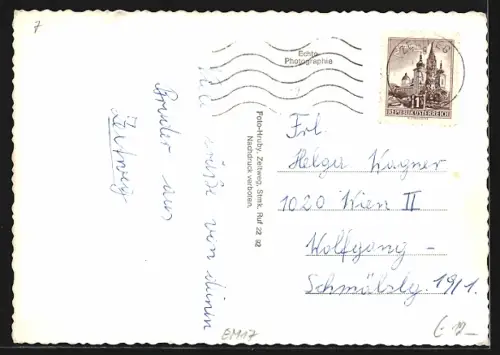 7
Echte
Photographie
REPUBLIK ÖSTERREICH
Viele Grüße von deinem
Bruder aus
Zeltweg
Foto-Hruby, Zeltweg, Stmk. Ruf 22 92
Nachdruck verboten.
Frl.
Helga Wagner
1020 Wien II
Wolfgang-
Schmälzlg. 19/1.
EM17